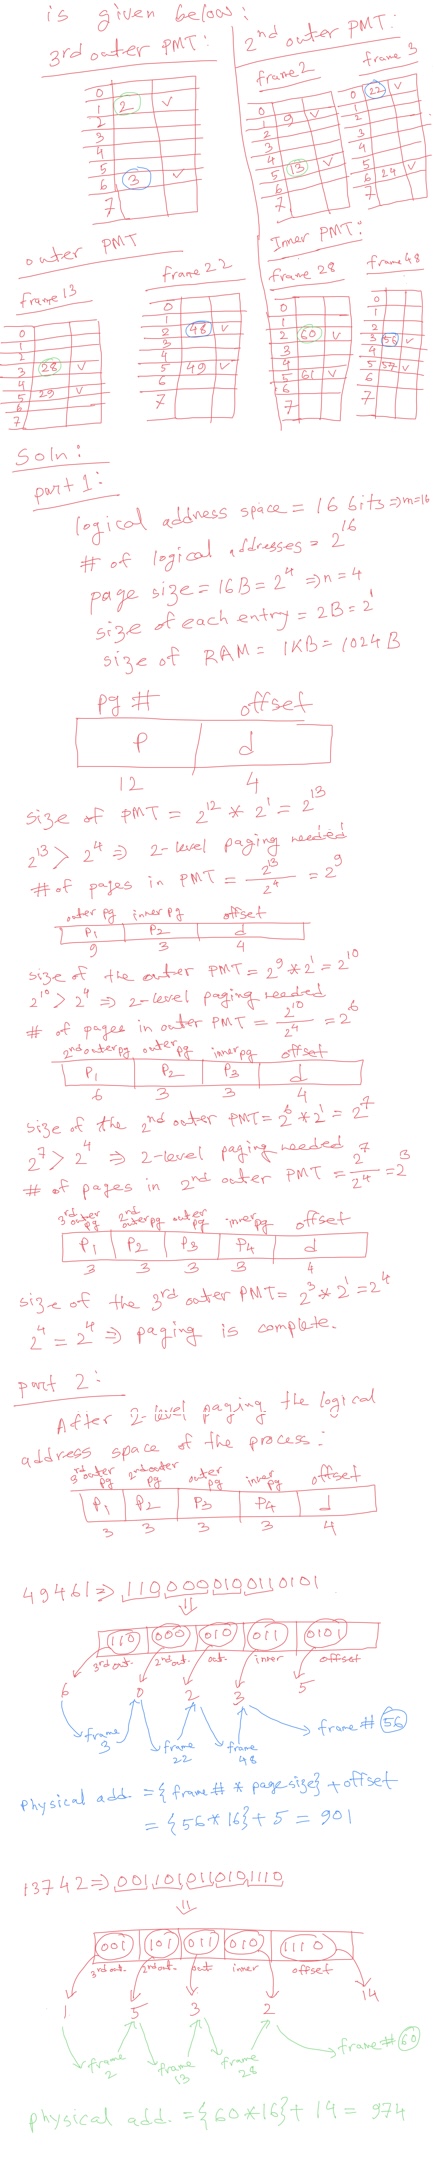 is given below:
3rd outer PMT:
2nd outer PMT:
frame 2
frame 3
0
1 2 ✓
2
3
4
5
6 3 ✓
7
0
1 9 ✓
2
3
4
5 13 ✓
6
7
0 22 ✓
1
2
3
4
5
6 24 ✓
7
outer PMT
Inner PMT:
frame 13
frame 22
frame 28
frame 48
0
1
2
3 28 ✓
4
5 29 ✓
6
7
0
1
2 48 ✓
3
4
5 49 ✓
6
7
0
1
2 60 ✓
3
4
5 61 ✓
6
7
0
1
2
3 56 ✓
4
5 57 ✓
6
7
Soln:
part 1:
logical address space = 16 bits ⇒ m=16
# of logical addresses = 2^16
page size = 16B = 2^4 ⇒ n = 4
size of each entry = 2B = 2^1
size of RAM = 1KB = 1024 B
pg # offset
P d
12 4
size of PMT = 2^12 * 2^1 = 2^13
2^13 > 2^4 ⇒ 2-level paging needed
# of pages in PMT = 2^13/2^4 = 2^9
outer pg inner pg offset
P1 P2 d
9 3 4
size of the outer PMT = 2^9 * 2^1 = 2^10
2^10 > 2^4 ⇒ 2-level paging needed
# of pages in outer PMT = 2^10/2^4 = 2^6
2nd outer pg outer pg inner pg offset
P1 P2 P3 d
6 3 3 4
size of the 2nd outer PMT = 2^6 * 2^1 = 2^7
2^7 > 2^4 ⇒ 2-level paging needed
# of pages in 2nd outer PMT = 2^7/2^4 = 2^3
3rd outer pg 2nd outer pg outer pg inner pg offset
P1 P2 P3 P4 d
3 3 3 3 4
size of the 3rd outer PMT = 2^3 * 2^1 = 2^4
2^4 = 2^4 ⇒ paging is complete.
part 2:
After 2-level paging the logical
address space of the process:
3rd outer pg 2nd outer pg outer pg inner pg offset
P1 P2 P3 P4 d
3 3 3 3 4
49461 ⇒ 1100000100110101
⇓
110 000 010 011 0101
3rd out. 2nd out. out. inner offset
6 0 2 3 5
frame 3 frame 22 frame 48 frame # 56
Physical add. = {frame # * page size} + offset
= {56 * 16} + 5 = 901
13742 ⇒ 0011010110101110
⇓
001 101 011 010 1110
3rd out. 2nd out. out inner offset
1 5 3 2 14
frame 2 frame 13 frame 28 frame # 60
Physical add. = {60 * 16} + 14 = 974